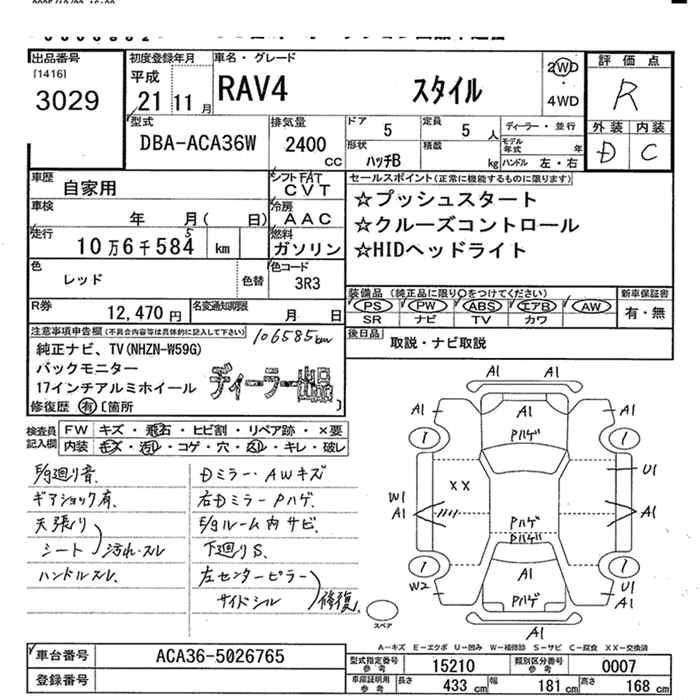 出品番号
[1416]
3029
初度登録年月
平成
21 11 月
車名・グレード
RAV4 スタイル
2WD
・
4WD
評価点
R
外装 内装
D C
型式
DBA-ACA36W
排気量
2400
cc
ドア 5
定員 5 人
形状 ハッチB
積載 kg
ディーラー・並行
モデル年式 年
ハンドル 左・右
車歴
自家用
シフト FAT
CVT
車検
年 月( 日)
冷房
AAC
走行
10万6千584 5 km
燃料
ガソリン
色
レッド
色替
色コード
3R3
R券
12,470 円
名変通知期限
月 日
セールスポイント(正常に機能するものに限ります)
☆プッシュスタート
☆クルーズコントロール
☆HIDヘッドライト
装備品(純正品に限り○をつけてください)
PS PW ABS エアB AW
SR ナビ TV カワ
新車保証書
有・無
後日品
取説・ナビ取説
注意事項申告欄(不具合内容等は具体的に記入して下さい)
106585km
純正ナビ、TV(NHZN-W59G)
バックモニター
17インチアルミホイール
ディーラー出品
修復歴 有 [箇所 ]
検査員記入欄
FW キズ・飛石・ヒビ割・リペア跡・×要
内装 キズ・汚れ・コゲ・穴・スレ・キレ・破レ
E/g廻り音.
ギアショック有.
天張り
シート 汚れ・スレ
ハンドルスレ.
Dミラー・AWキズ
右DミラーPハゲ.
E/gルーム内サビ
下廻りS.
左センターピラー
サイドシル 修復.
A1 A1
A1 A1 A1
Pハゲ
1 1
XX
U1
W1
A1
A1
Pハゲ
Pハゲ
1 1
W2
A1
U1
A1
Pハゲ
A1
スペア
A－キズ E－エクボ U－凹み W－補修跡 S－サビ C－腐食 XX－交換済
車台番号
ACA36-5026765
登録番号
型式指定番号
参考
15210
類別区分番号
参考
0007
車庫証明用
参考
長さ 433 cm
幅 181 cm
高さ 168 cm